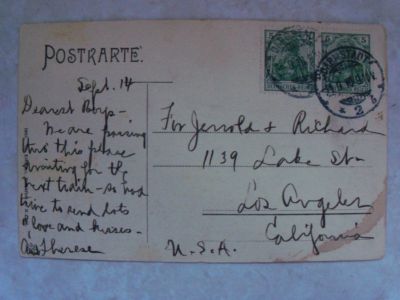 POSTKARTE.
Sept. 14
Dearest Boys-
We are passing
thro this place
waiting for the
next train - so had
time to send lots
of love and kisses -
Aunt Therese
For Jerrold & Richard
1139 Lake St-
Los Angeles
California
U.S.A.
5
5
2